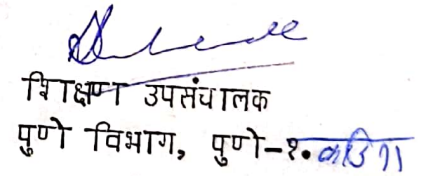 शिक्षण उपसंचालक
पुणे विभाग, पुणे-१.